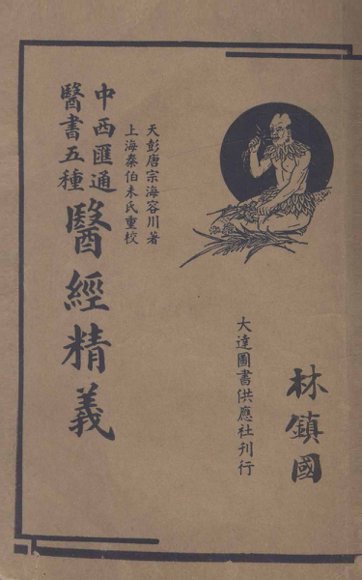 林鎮國
大達圖書供應社刊行
天彭唐宗海容川著
上海秦伯未氏重校
中西匯通
醫書五種
醫經精義